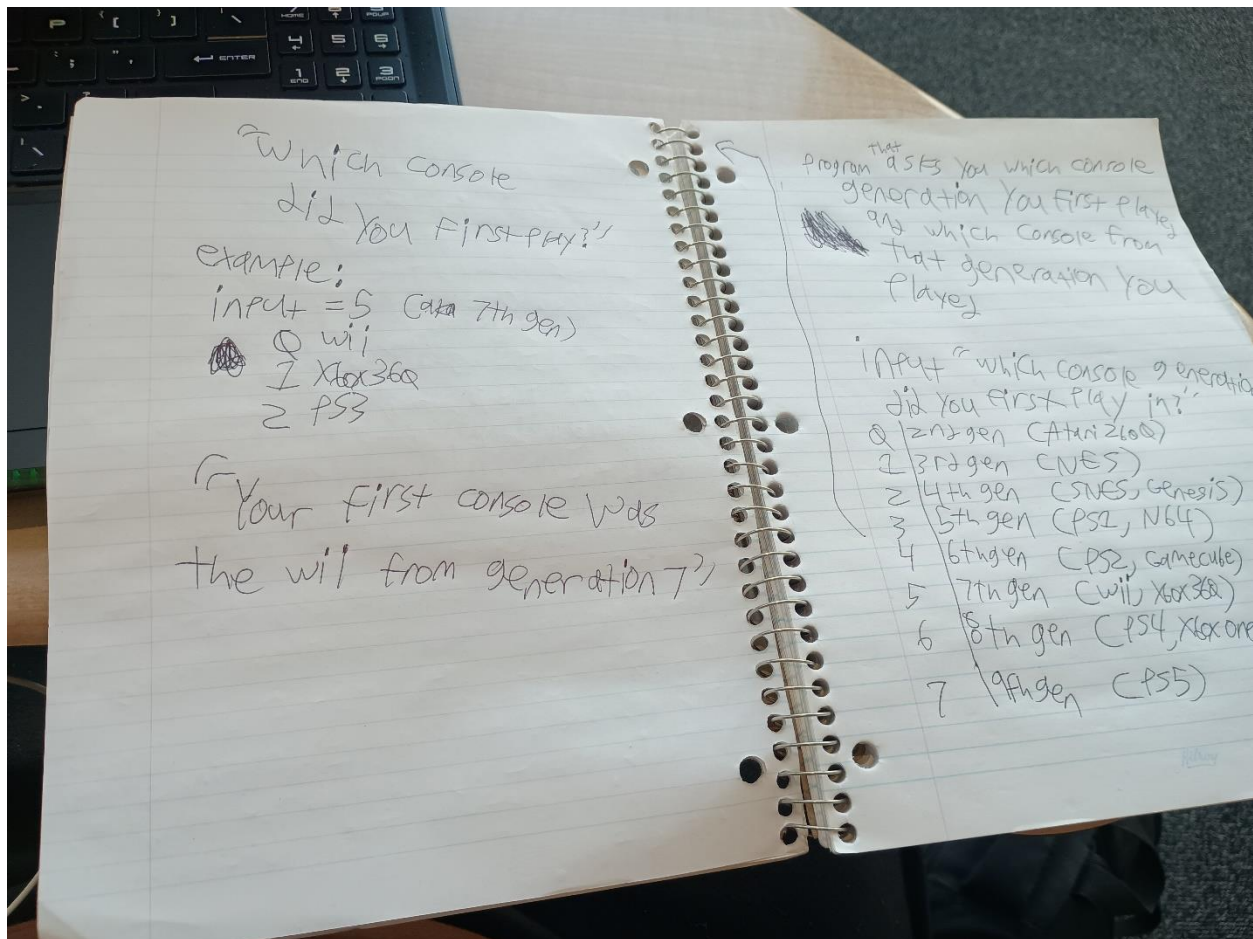 P
{
[
}
]
|
\
HOME
PGUP
:
;
"
,
ENTER
4
5
6
1
END
2
3
PGDN
>
.
"Which console
did You First Play?"
example:
input = 5 (aka 7th gen)
0 wii
1 Xbox 360
2 PS3
"Your first console was
the wii from generation 7"
program that asks you which console
generation You First Played
and which console from
that generation you
Played
input "which console generation
did you first play in?"
0 2nd gen (Atari 2600)
1 3rd gen (NES)
2 4th gen (SNES, Genesis)
3 5th gen (PS1, N64)
4 6th gen (PS2, Gamecube)
5 7th gen (wii, Xbox 360)
6 8th gen (PS4, Xbox one
7 9th gen (PS5)
Hilroy